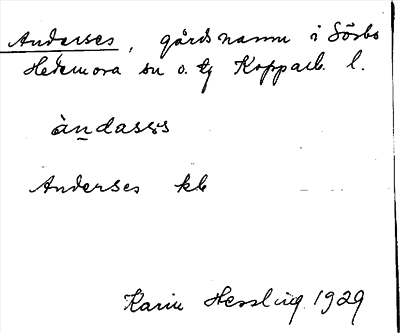 Anderses, gårdsnamn i Sörbo
Hedemora sn o. tg Kopparb. l.
àndasɛs
Anderses kb
Karin Hessling 1929